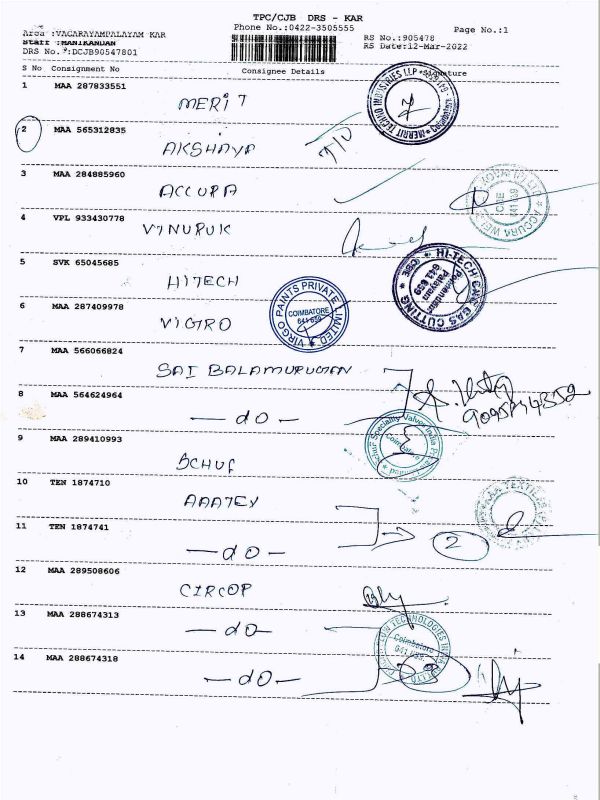 TPC/CJB DRS - KAR
Phone No.:0422-3505555
Page No.:1
Area :VAGARAYAMPALAYAM KAR
Staff :MANIKANDAN
DRS No. :DCJB90547801
RS No.:905478
RS Date:12-Mar-2022
S No Consignment No Consignee Details Signature
1 MAA 287833551 MERIT
MERRIT TECHNO INDUSTRIES LLP Coimbatore
2 MAA 565312835 AKSHAYA
3 MAA 284885960 ACCURA
ACCURA CBE 641 659
4 VPL 933430778 VINURUK
5 SVK 65045685 HITECH
HI-TECH CNC GAS CUTTING CBE Palayam 641 659
6 MAA 287409978 VIGRO
VIRGO PAINTS PRIVATE LIMITED COIMBATORE 641 659
7 MAA 566066824 SAI BALAMURUGAN
8 MAA 564624964 — do —
9 MAA 289410993 BCHUF
Speciality Valves India Coimbatore
10 TEN 1874710 AAATEX
11 TEN 1874741 — do —
2
12 MAA 289508606 CIRCOP
13 MAA 288674313 — do —
TECHNOLOGIES Coimbatore
14 MAA 288674318 — do —